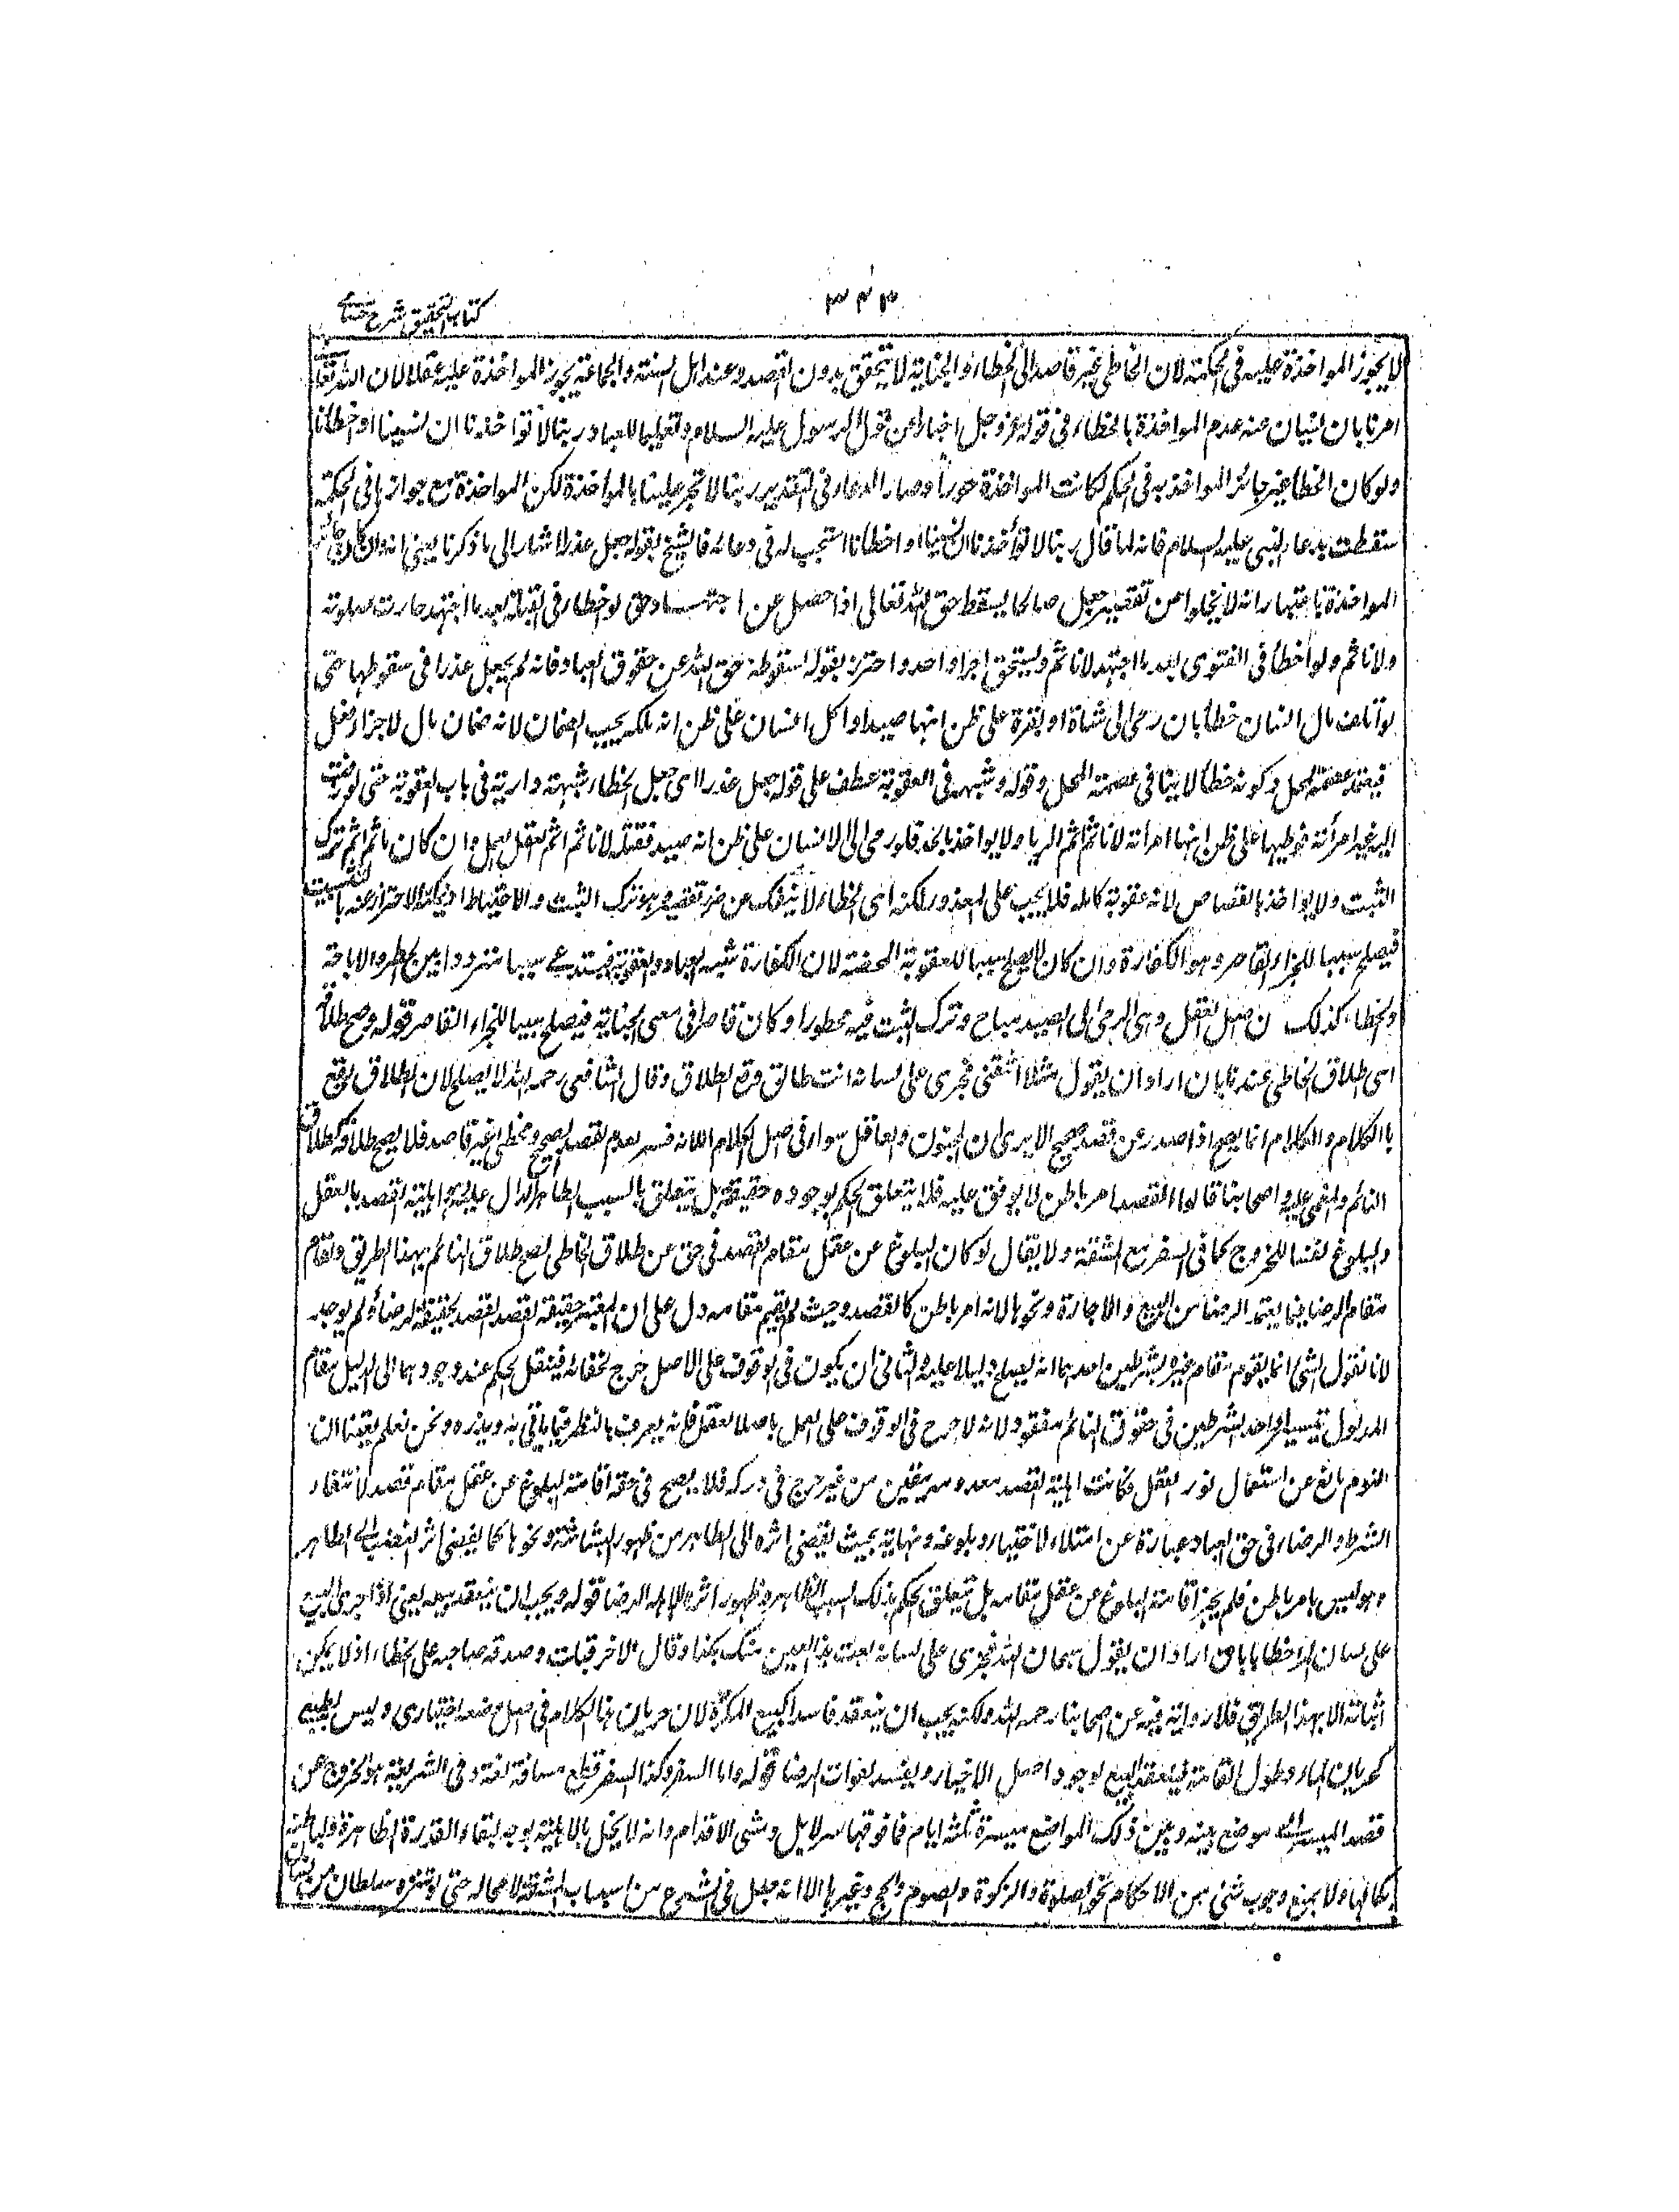 ٣٤٣
كتاب التحقيق شرح حسامى
لا يجوز المواخذة عليه فى الحكمة لان الخاطى غير قاصد الى الخطاء والجناية لا تتحقق بدون القصد وعند اهل السنة والجماعة يجوز المواخذة عليه عقلا لان الله تعالى
امرنا بان عنه عدم المواخذة بالخطاء فى قوله عز وجل اخبارا عن قول الرسول عليه السلام وتعليما للعباد ربنا لا تؤاخذنا ان نسينا او اخطأنا
ولو كان الخطأ غير جائز المواخذ به فى الحكم لكانت المواخذة جورا وصار الدعاء فى التقدير ربنا لا تجر علينا بالمواخذة لكن المواخذة مع جوازها فى الحكمة
سقطت بدعاء النبى عليه السلام فانه لما قال ربنا لا تؤاخذنا ان نسينا او اخطأنا استجيب له فى دعائه فالشيخ بقوله جعل عذرا اشار الى ما ذكرنا يعنى انه وان كان جائز
المواخذة باعتبار انه لا يخلوا عن تقصير جعل كما يسقط حق الله تعالى اذا حصل عن اجتهاد حتى لو اخطاء فى القبلة بعد ما اجتهد جازت صلوته
ولا ياثم ولو اخطأ فى الفتوى بعد ما اجتهد لا ياثم ويستحق اجرا واحدا واحترز بقوله لسقوط حق الله عن حقوق العباد فانه لم يجعل عذرا فى سقوطها حتى
لو اتلف مال انسان خطأ بان رمى الى شاة او بقرة على ظن انها صيد او اكل مال انسان على ظن انه ملكه يجب الضمان لانه ضمان مال لا جزاء فعل
فيعتمد عصمة المحل وكونه خطأ لا ينافى عصمة المحل وقوله وشبهة فى العقوبة عطف على قوله جعل عذرا اى جعل الخطاء شبهة دارئة فى باب العقوبة حتى لو زفت
اليه غير امرأته فوطيها على ظن انها امرأته لا ياثم اثم الزنا ولا يواخذ بالحد ولو رمى الى انسان على ظن انه صيد فقتله لا ياثم اثم القتل العمد وان كان ياثم اثم ترك
التثبت ولا يواخذ بالقصاص لانه عقوبة كاملة فلا يجب على المعذور لكنه اى الخطاء لا ينفك عن ضرب تقصير وهو ترك التثبت والاحتياط اذ يمكن الاحتراز عنه بالتثبت
فيصلح سببا للجزاء القاصر وهو الكفارة وان كان لا يصلح سببا للعقوبة المحضة لان الكفارة تشبه العبادة والعقوبة فيستدعى سببا مترددا بين الحظر والاباحة
والخطاء كذلك لان اصل الفعل وهو الرمى الى الصيد مباح وترك التثبت فيه محظور او كان قاصرا فى معنى الجناية فيصلح سببا للجزاء القاصر قوله وصح طلاقه
اى طلاق الخاطى عندنا بان اراد ان يقول مثلا اسقنى فجرى على لسانه انت طالق وقع الطلاق وقال الشافعى رحمه الله لا يصح لان الطلاق يقع
بالكلام والكلام انما يصح اذا صدر عن قصد صحيح الا يرى ان المجنون والعاقل سواء فى اصل الكلام الا انه فسد لعدم القصد الصحيح والمخطى غير قاصد فلا يصح طلاقه كطلاق
النائم والمغمى عليه واصحابنا قالوا القصد امر باطن لا يوقف عليه فلا يتعلق الحكم بوجوده حقيقة بل يتعلق بالسبب الظاهر الدال عليه وهو اهلية القصد بالعقل
والبلوغ نفيا للحرج كما فى السفر مع المشقة ولا يقال لو كان البلوغ عن عقل مقام القصد فى حق طلاق الخاطى لصح طلاق النائم بهذا الطريق ولقام
مقام الرضا فيما يعتمد الرضا من البيع والاجارة ونحوها لانه امر باطن كالقصد وحيث لم يقم مقامه دل على ان المعتبر حقيقة القصد ولم يوجد
لانا نقول الشئ انما يقوم مقام غيره بشرطين احدهما انه يصلح دليلا عليه والثانى ان يكون فى الوقوف على الاصل حرج لخفائه فينقل الحكم عند وجودهما الى الدليل مقام
المدلول تيسيرا واحد الشرطين فى حقوق النائم مفقود ولانه لا حرج فى الوقوف على العمل باصل العقل فانه يعرف بالنظر فيما ياتى به ويذره ونحن نعلم يقينا ان
النوم مانع عن استعمال نور العقل فكانت اهلية القصد معدومة بيقين من غير حرج فى دركه فلا يصح فى حقه اقامة البلوغ عن عقل مقام قصد لانتفاء
الشرط والرضاء فى حق العباد عبارة عن امتلاء الاختيار وبلوغه ونهايته بحيث يفضى اثره الى الظاهر من ظهور البشاشة ونحوها كما يفضى اثر الغضب الى الظاهر
وهو ليس بامر باطن فلم يجز اقامة البلوغ عن عقل مقامه بل يتعلق الحكم بذلك السبب الظاهر وظهور اثره الرضا قوله ويجب ان ينعقد بيعه يعنى اذا جرى البيع
على لسان المرء خطأ بان اراد ان يقول سبحان الله فجرى على لسانه بعت هذا العين منك بكذا وقال الاخر قبلت وصدقه صاحبه على الخطاء اذ لا يمكن
اثباته الا بهذا الطريق فلا رواية فيه عن اصحابنا رحمه الله ولكنه يجب ان ينعقد فاسدا كبيع المكره لان جريان هذا الكلام فى اصل وضعه اختيارى وليس بطبعى
كجريان الماء وطول القامة فينعقد البيع لوجود اصل الاختيار ويفسد لفوات الرضا قوله واما السفر فكذا السفر قطع مسافة لغة وفى الشريعة هو الخروج عن
قصد المسير الى موضع بينه وبين ذلك المواضع مسيرة ثلثة ايام فما فوقها سير الابل ومشى الاقدام وانه لا يخل بالاهلية بوجه لبقاء القدرة الظاهرة والباطنة
بكمالها ولا يمنع وجوب شئ من الاحكام نحو الصلوة والزكوة والصوم والحج وغيرها الا انه جعل فى الشرع من اسباب المشقة لا محالة حتى لو تنزه سلطان من بستان